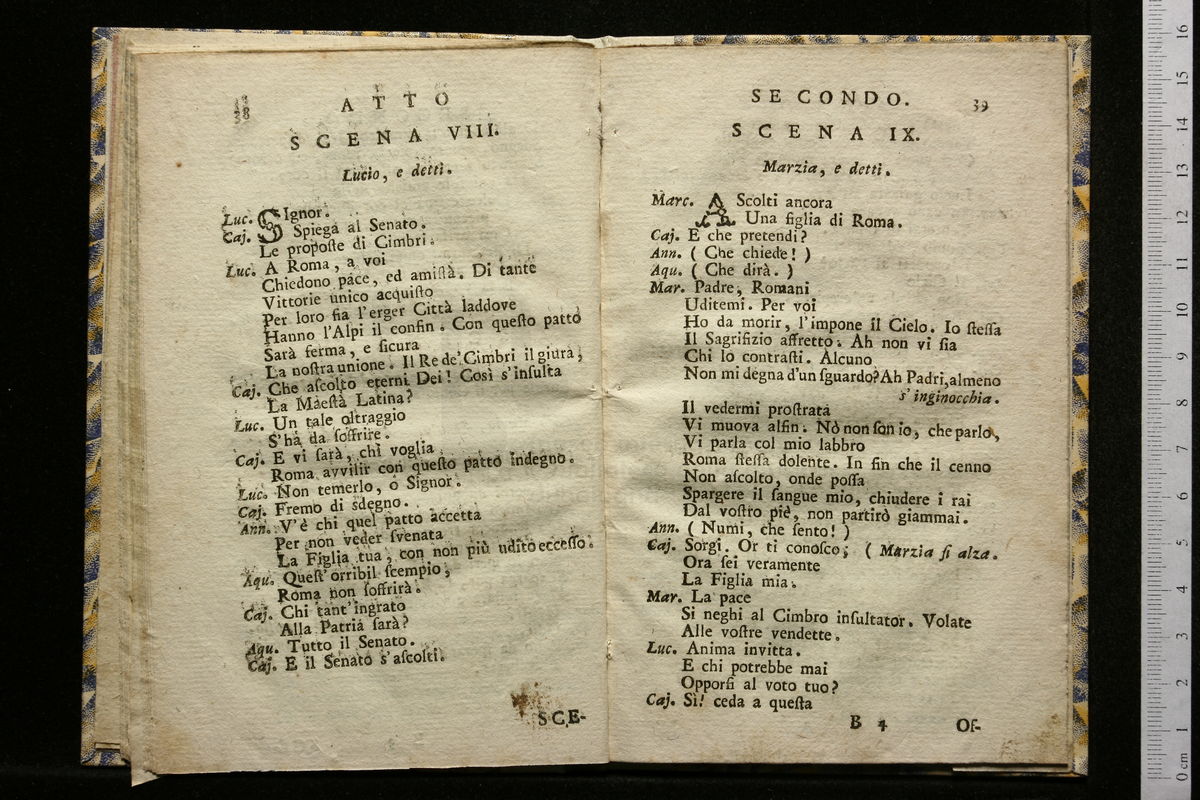 38
ATTO
SCENA VIII.
Lucio, e detti.
Luc. SIgnor.
Caj. Spiega al Senato.
Le propoſte di Cimbri.
Luc. A Roma, a voi
Chiedono pace, ed amiſtà. Di tante
Vittorie unico acquiſto
Per loro fia l'erger Città laddove
Hanno l'Alpi il confin. Con queſto patto
Sarà ferma, e ſicura
La noſtra unione. Il Re de' Cimbri il giura;
Caj. Che aſcolto eterni Dei! Così s'inſulta
La Maeſtà Latina?
Luc. Un tale oltraggio
S'hà da ſoffrire.
Caj. E vi ſarà, chi voglia
Roma avvilir con queſto patto indegno.
Luc. Non temerlo, ò Signor.
Caj. Fremo di sdegno.
Ann. V'è chi quel patto accetta
Per non veder ſvenata
La Figlia tua, con non più udito ecceſſo.
Aqu. Queſt'orribil ſcempio,
Roma non ſoffrirà.
Caj. Chi tant'ingrato
Alla Patria ſarà?
Aqu. Tutto il Senato.
Caj. E il Senato s'aſcolti.
SCE-
SECONDO.
39
SCENA IX.
Marzia, e detti.
Marc. AScolti ancora
Una figlia di Roma.
Caj. E che pretendi?
Ann. ( Che chiede! )
Aqu. ( Che dirà. )
Mar. Padre, Romani
Uditemi. Per voi
Ho da morir, l'impone il Cielo. Io ſteſſa
Il Sagrifizio affretto. Ah non vi ſia
Chi lo contraſti. Alcuno
Non mi degna d'un ſguardo? Ah Padri, almeno
s'inginocchia.
Il vedermi proſtrata
Vi muova alfin. Nò non ſon io, che parlo,
Vi parla col mio labbro
Roma ſteſſa dolente. In fin che il cenno
Non aſcolto, onde poſſa
Spargere il ſangue mio, chiudere i rai
Dal voſtro piè, non partirò giammai.
Ann. ( Numi, che ſento! )
Caj. Sorgi. Or ti conoſco; ( Marzia ſi alza.
Ora ſei veramente
La Figlia mia.
Mar. La pace
Si neghi al Cimbro inſultator. Volate
Alle voſtre vendette.
Luc. Anima invitta.
E chi potrebbe mai
Opporſi al voto tuo?
Caj. Sì! ceda a queſta
B 4
Of-
0 cm 1 2 3 4 5 6 7 8 9 10 11 12 13 14 15 16